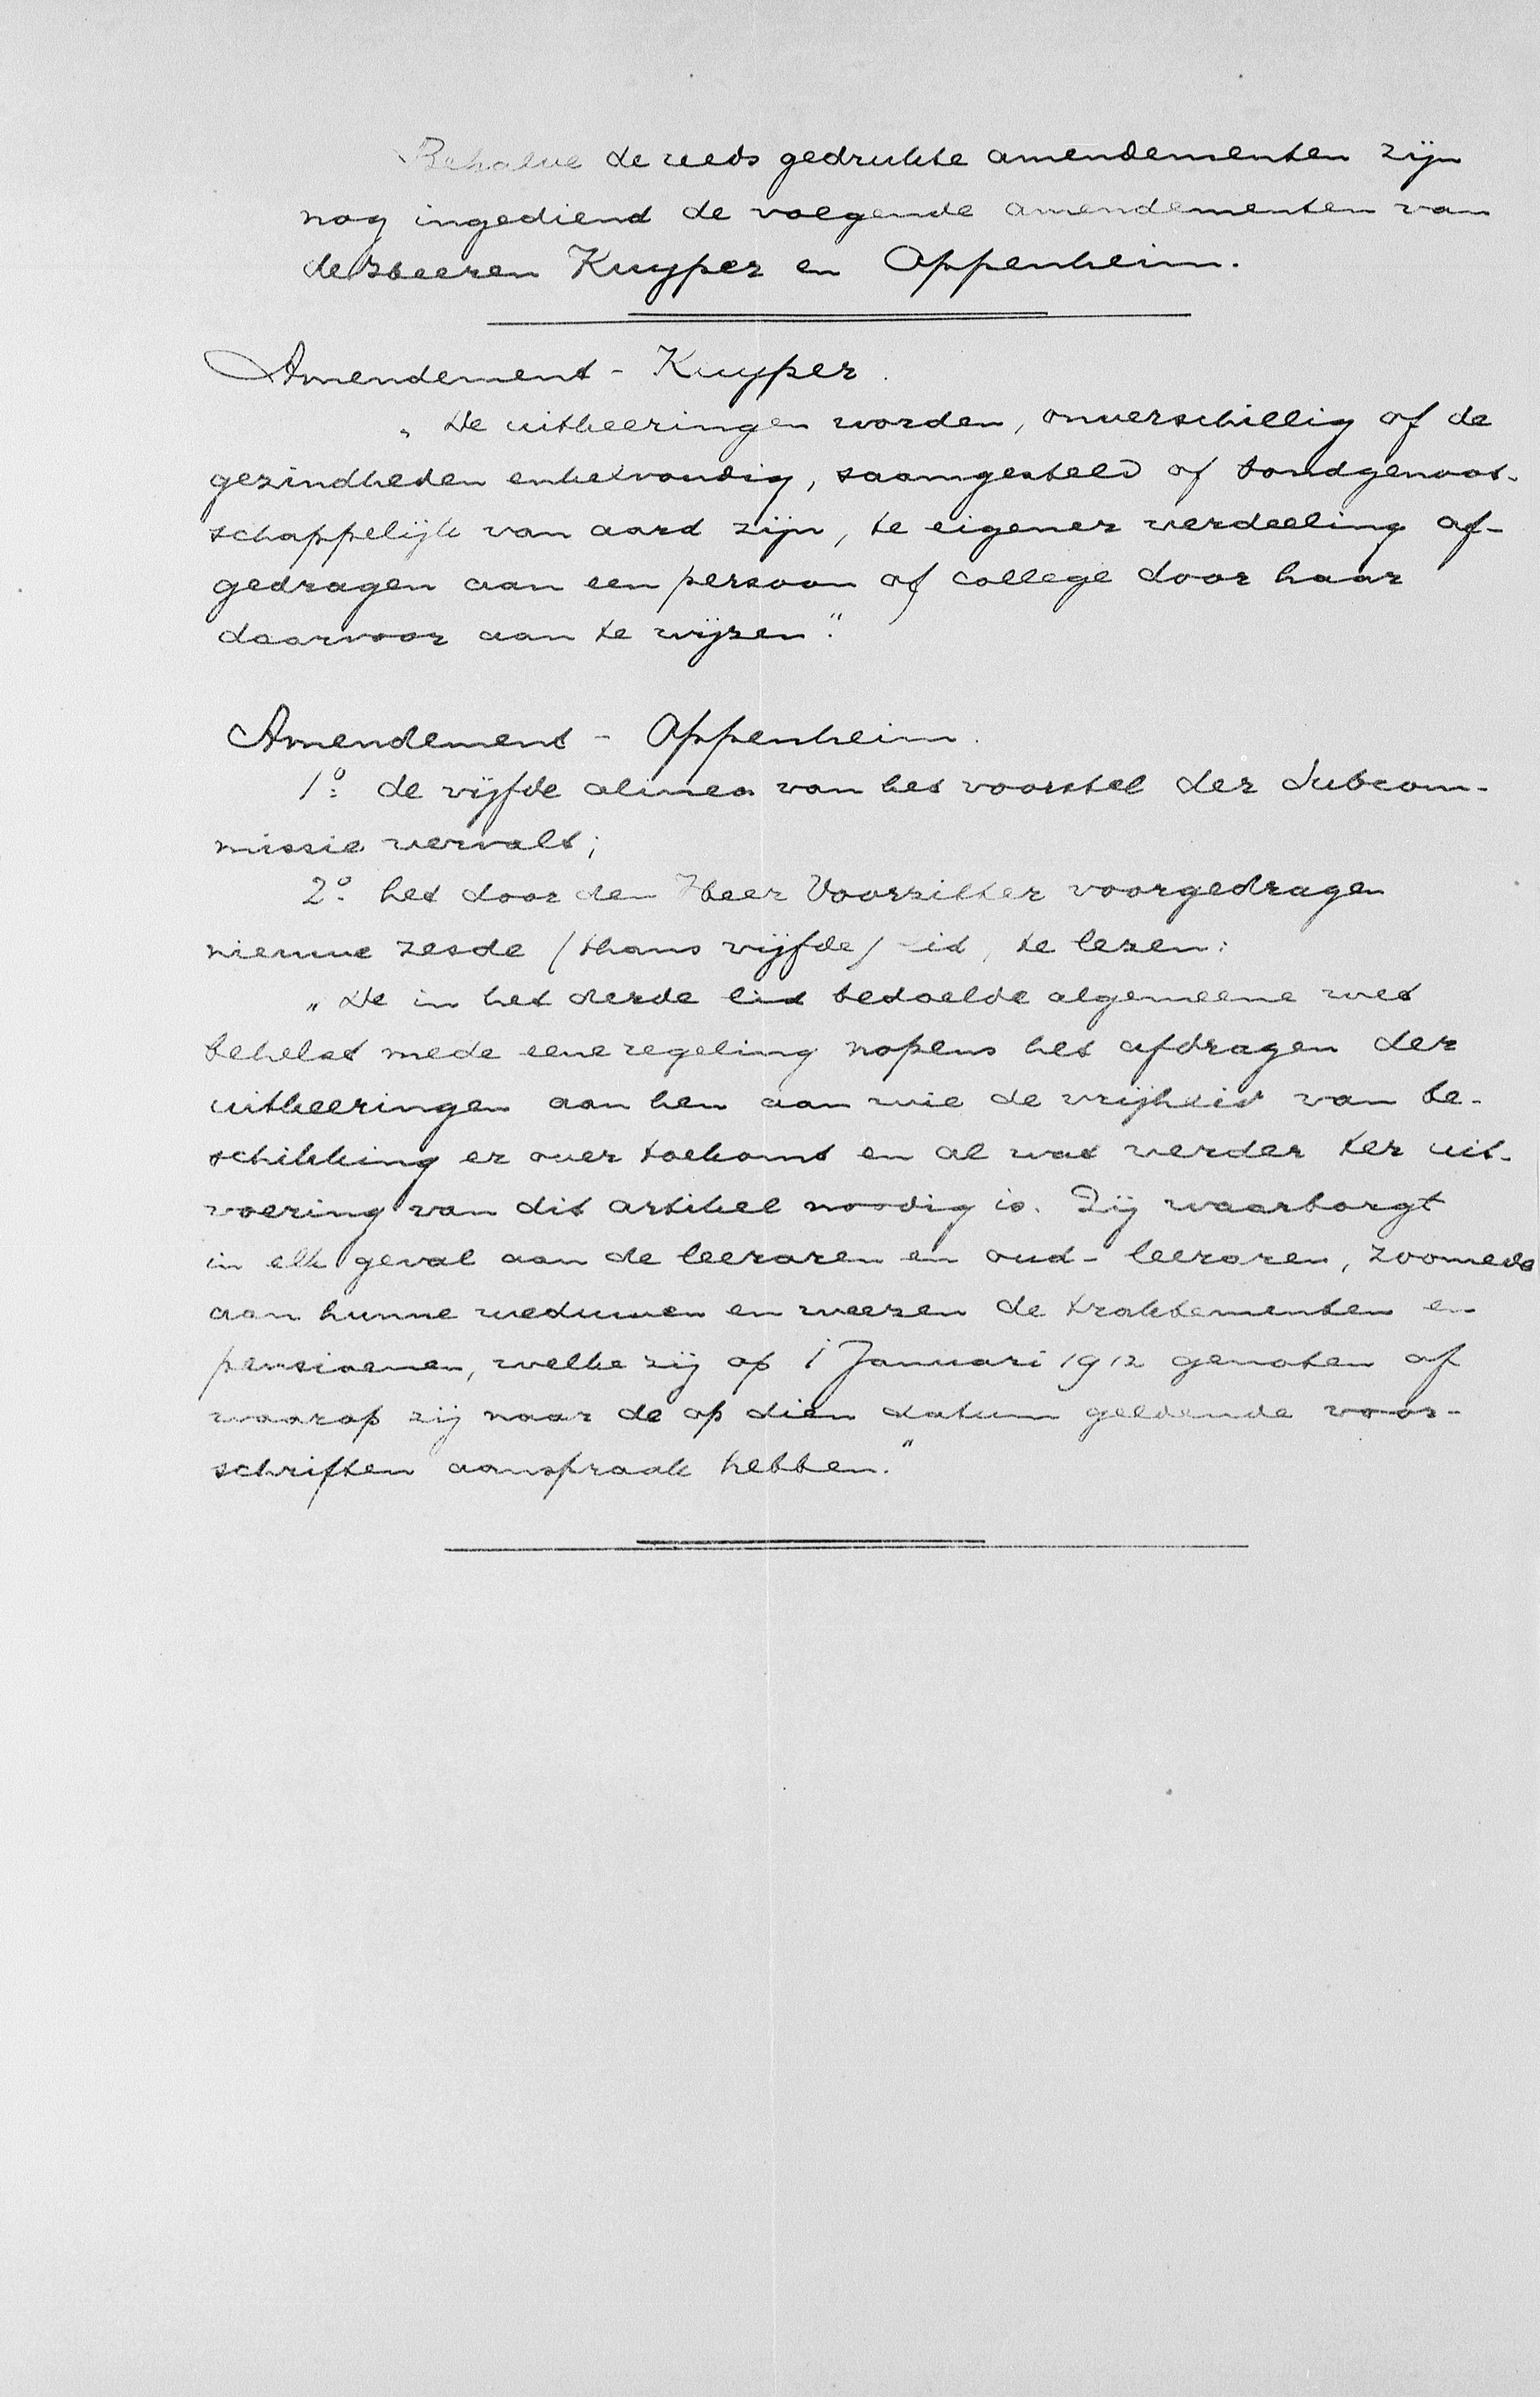 Behalve de reeds gedrukte amendementen zijn
nog ingediend de volgende amendementen van
de Heeren Kuyper en Oppenheim.
Amendement - Kuyper.
„De uitkeeringen worden, onverschillig of de
gezindheden enkelvoudig, saamgesteld of bondgenoot-
schappelijk van aard zijn, te eigener verdeeling af-
gedragen aan een persoon of college door haar
daarvoor aan te wijzen".
Amendement - Oppenheim.
1o. de vijfde alinea van het voorstel der Subcom-
missie vervalt;
2o. het door den Heer Voorzitter voorgedragen
nieuwe zesde (thans vijfde) lid, te lezen:
„De in het derde lid bedoelde algemeene wet
behelst mede eene regeling nopens het afdragen der
uitkeeringen aan hen aan wie de vrijheid van be-
schikking er over toekomt en al wat verder ter uit-
voering van dit artikel noodig is. Zij waarborgt
in elk geval aan de leeraren en oud-leeraren, zoomede
aan hunne weduwen en weezen de traktementen en
pensioenen, welke zij op 1 Januari 1912 genoten of
waarop zij naar de op dien datum geldende voor-
schriften aanspraak hebben."